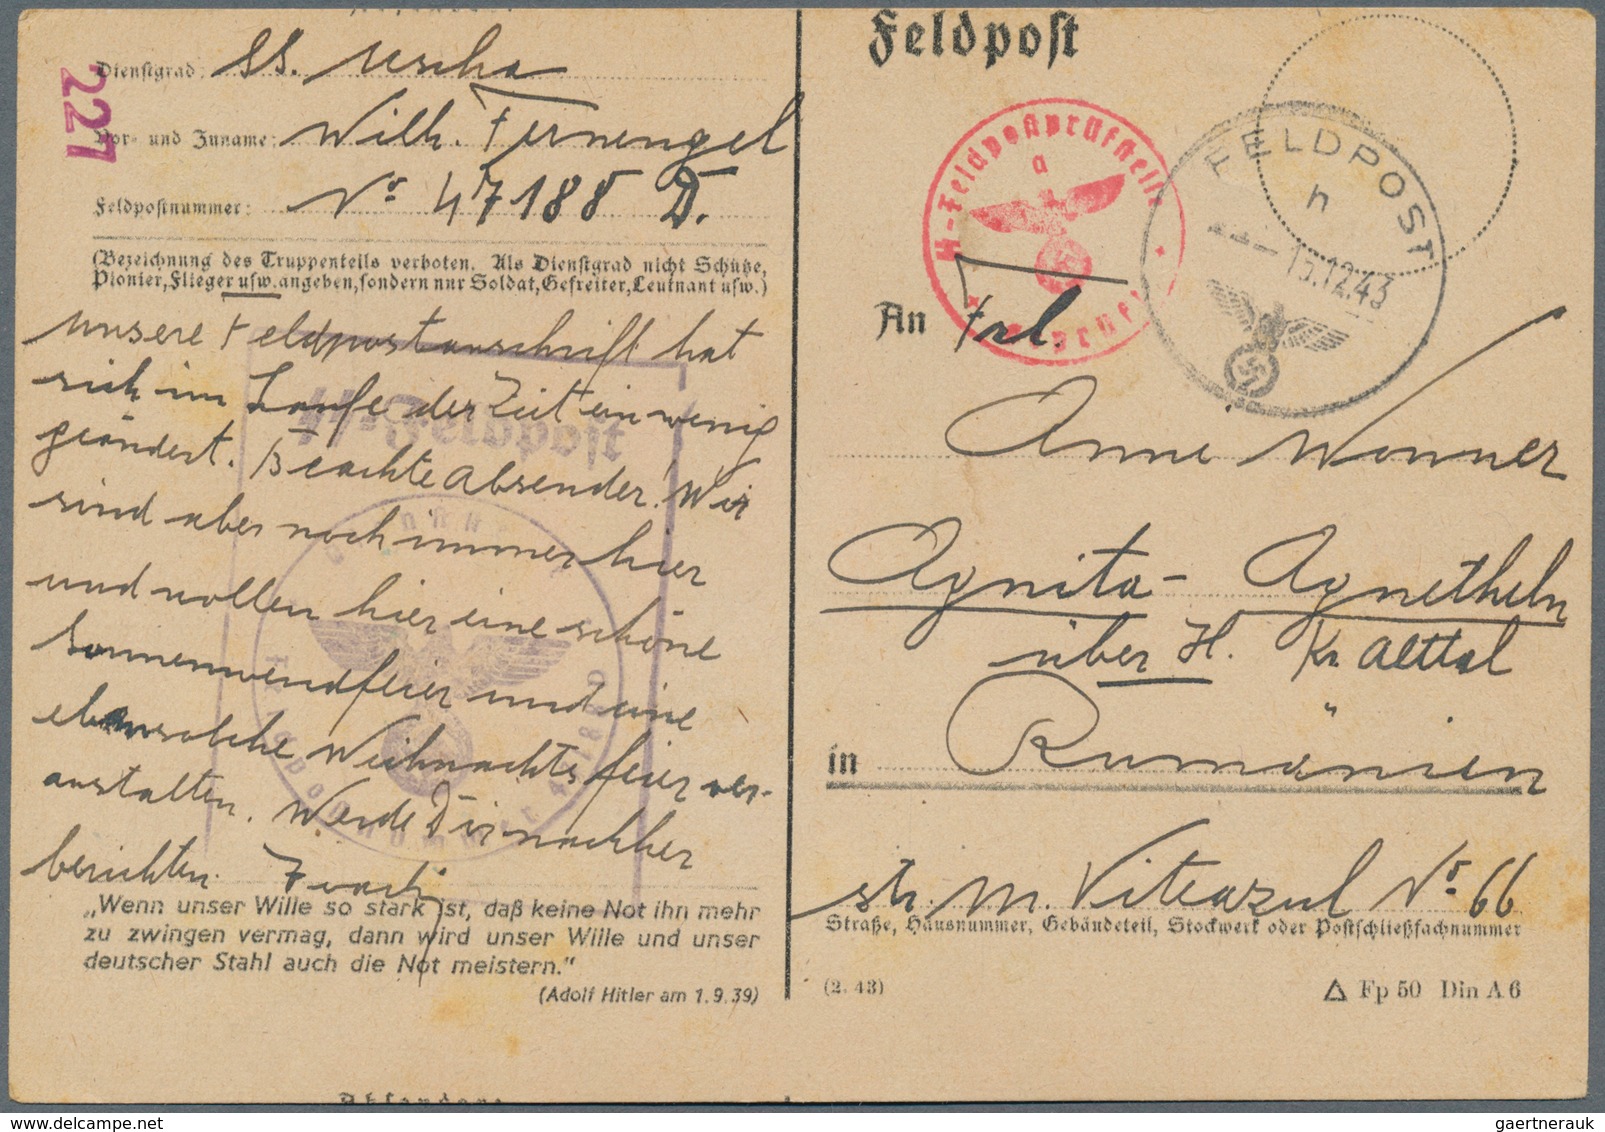 227
Dienstgrad: SS. Uscha
Vor- und Zuname: Wilh. Fernengel
Feldpostnummer: No 47188 D.
(Bezeichnung des Truppenteils verboten. Als Dienstgrad nicht Schütze,
Pionier, Flieger usw. angeben, sondern nur Soldat, Gefreiter, Leutnant usw.)
unsere Feldpostanschrift hat
sich im Laufe der Zeit ein wenig
geändert. Beachte Absender! Wir
sind aber noch immer hier
und wollen hier eine schöne
Sonnenwendfeier und eine
ebensolche Weihnachtsfeier ver-
anstalten. Werde Dir nachher
berichten.
SS-Feldpost
„Wenn unser Wille so stark ist, daß keine Not ihn mehr
zu zwingen vermag, dann wird unser Wille und unser
deutscher Stahl auch die Not meistern."
(Adolf Hitler am 1.9.39)
Feldpost
SS-Feldpostprüfstelle
a
FELDPOST
h
15.12.43
An Frl.
Anni Wonner
Agnita - Agnetheln
über H. Kr. Alttal
in Rumänien
str. M. Viteazul No 66
Straße, Hausnummer, Gebäudeteil, Stockwerk oder Postschließfachnummer
(2. 43)
Fp 50 Din A 6
gaertnerauk